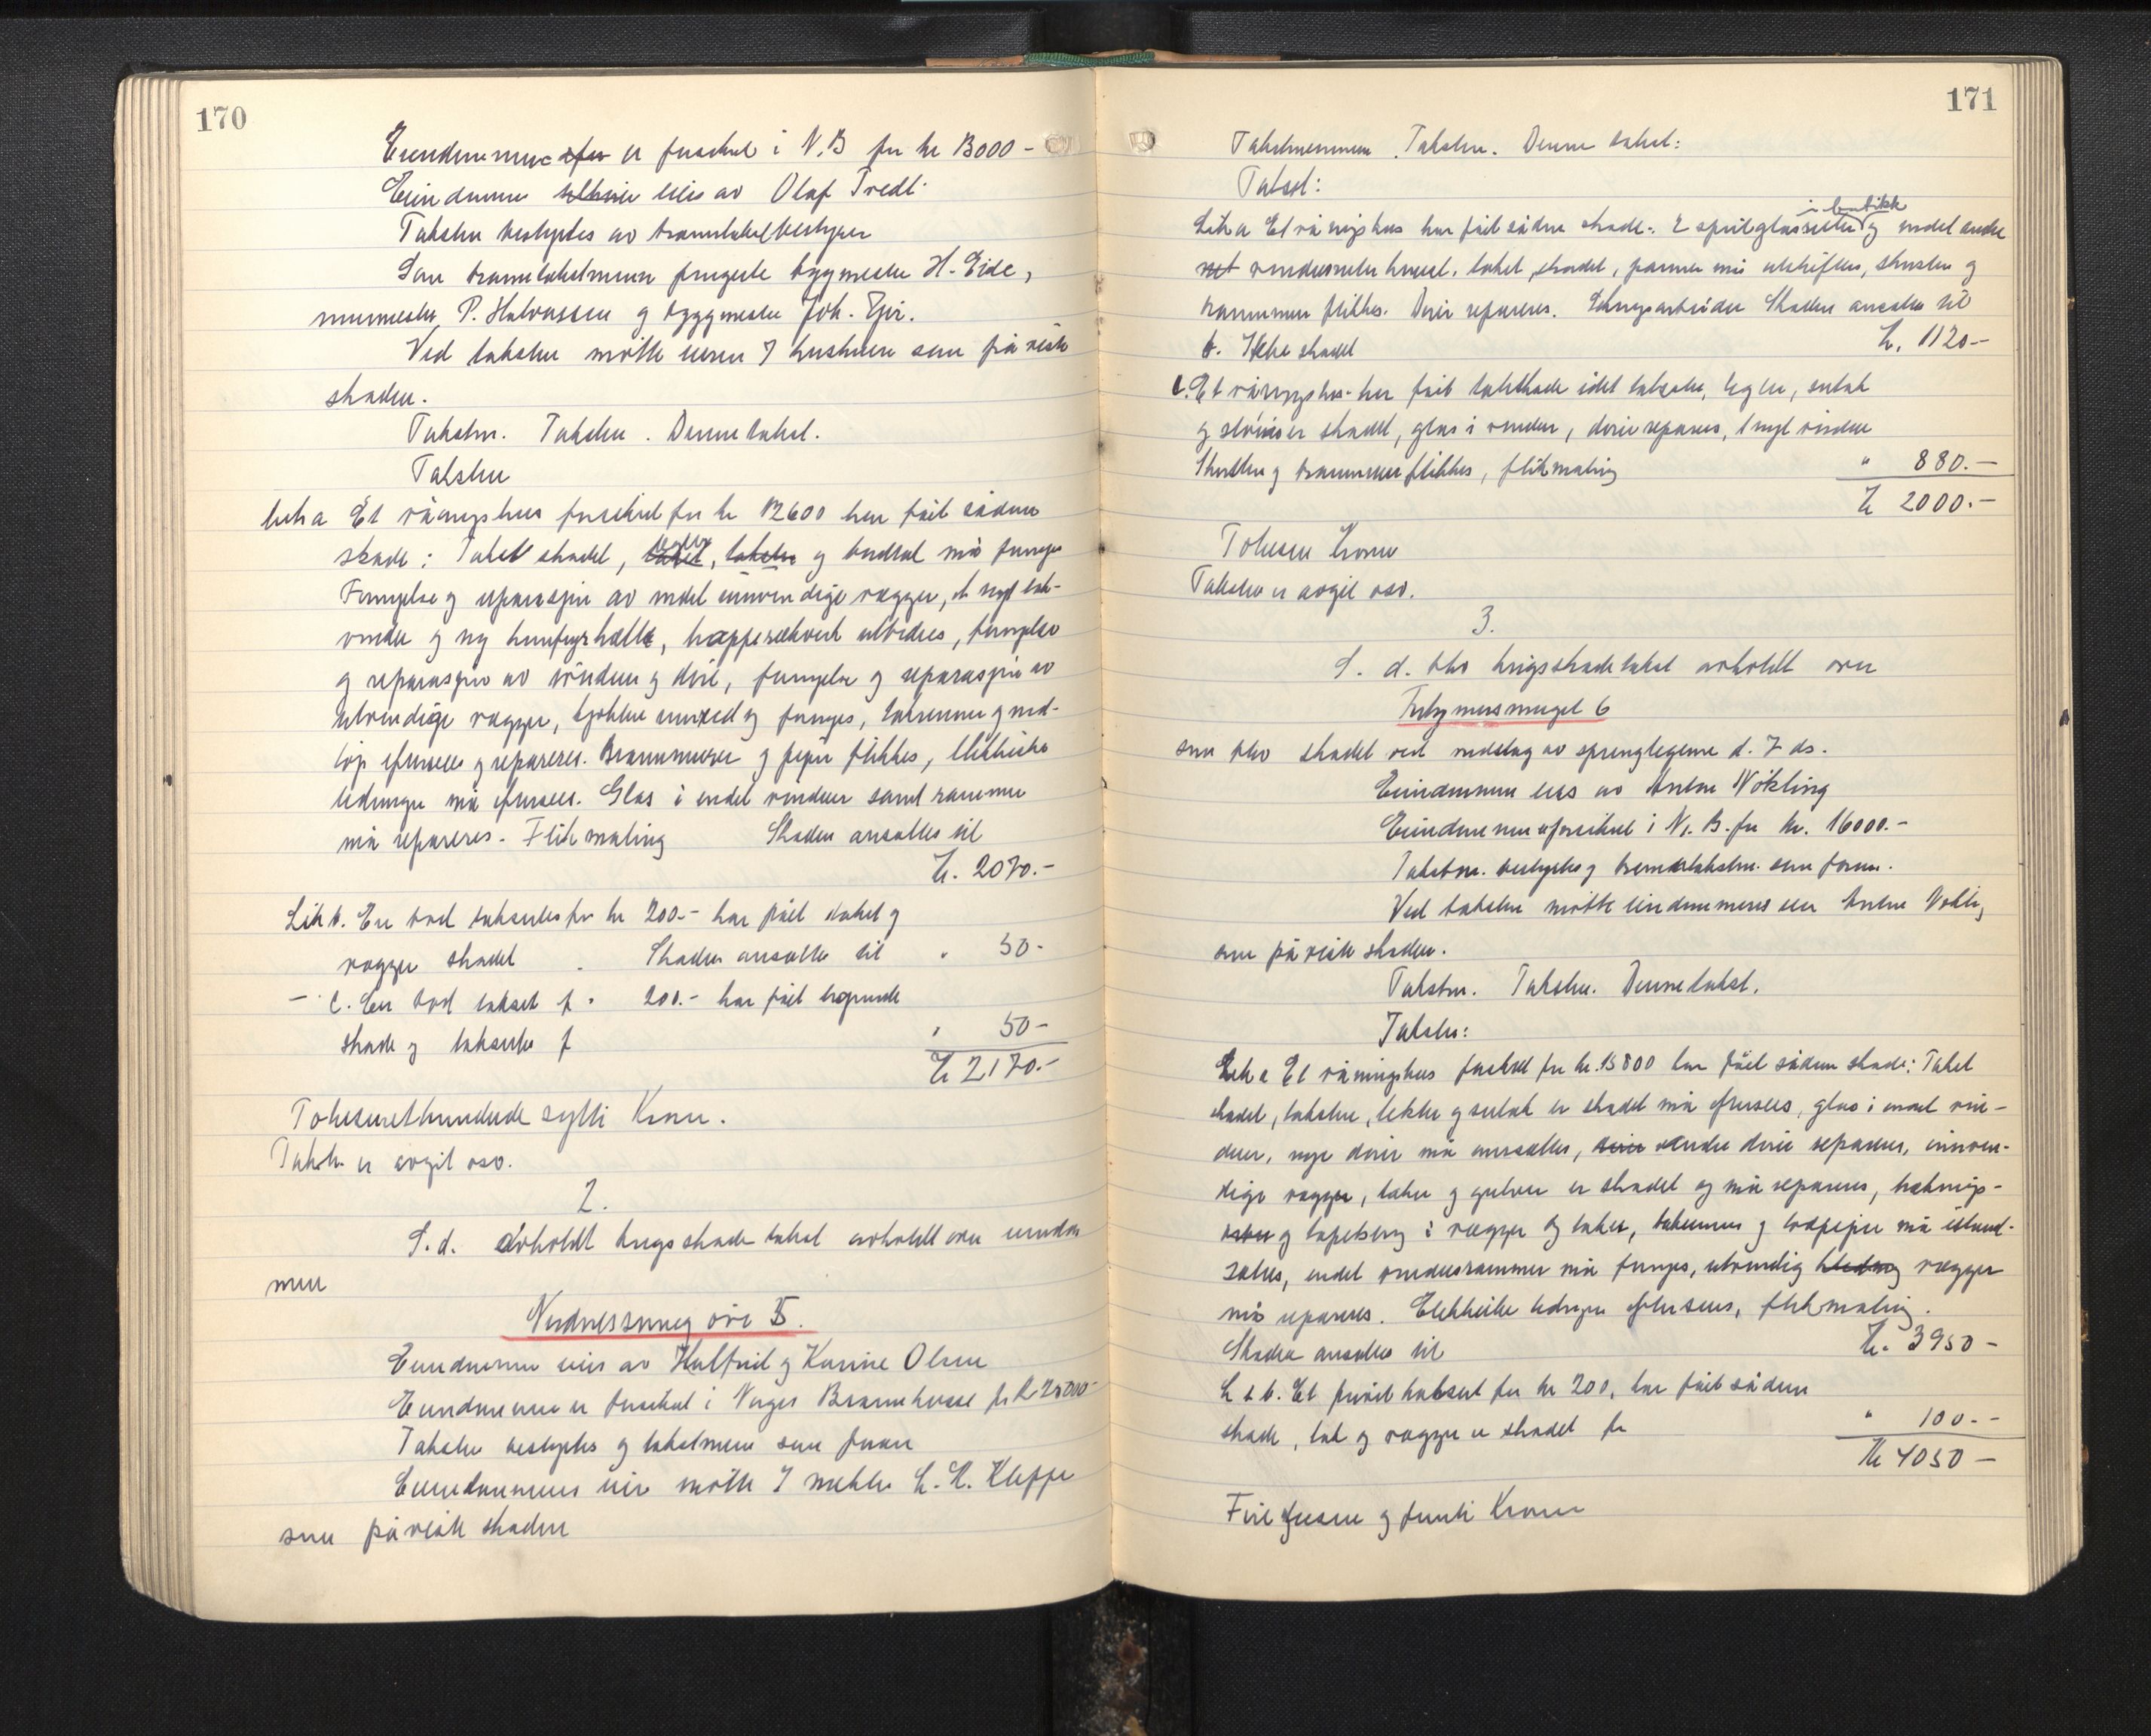 170
Eiendommen er forsikret i N.B for kr 13000-
Eiendommen eies av Olaf Tredt.
Taksten bestyrtes av branntakstbestyrer
Som branntakstmenn fungerte byggmester H. Eide,
murmester P. Halvorsen og byggmester Joh. Geir.
Ved taksten møtte eieren I hustruen som påviste
skaden.
Takstm. Taksten. Denne takst.
Taksten
Litr a Et våningshus forsikret for kr 12600 har fått sådan
skade: Taket skadet, og bordtak må fornyes
Fornyelse og reparasjon av endel innvendige vegger, et nytt tak-
vindu og ny komfyrhette, trapperekkverk utbedres, fornyelse
og reparasjon av vinduer og dører, fornyelse og reparasjon av
utvendige vegger, fornyes, takrenner og ned-
løp efterses og repareres. Brannmurer og piper flikkes, elektriske
ledninger må efterses. Glas i endel vinduer samt rammer
må repareres. Flikmaling Skaden ansettes til
kr. 2070.-
Litr b. En bod takseres for kr 200.- har fått taket og
vegger skadet. Skaden ansettes til " 50-
- " c. En bod takset f. " 200.- har fått lignende
skade og takseres f " 50-
kr 2170.-
Totusenethundrede sytti Kroner.
Takst. er avgit osv.
2.
S. d. avholdt krigsskadetakst avholdt over eiendom
men
Nordnessmug øvre 5.
Eiendommen eies av Halfrid og Karine Olsen
Eiendommen er forsikret i Norges Brannkasse for kr 25000-
Taksten bestyrtes og takstmenn som foran
Eiendommens eier møtte I mekler L. R. Kleppe
som påviste skaden
171
Takstmennene. Taksten. Denne takst:
Takst:
i butikk
Litr a Et våningshus har fått sådan skade. 2 speilglasruter og endel andre
vindusruter knust, taket skadet, panner må utskiftes, skorsten og
brannmur flikkes. Dører repareres. Skaden ansettes til
b. Ikke skadet kr. 1120.-
c. Et våningshus har fått takskade idet taksten, lekter, sutak
og er skadet, glas i vinduer, dører repareres, 1 nyt vindu
Skorsten og brannmurer flikkes, flikmaling " 880.-
kr 2000.-
Totusen Kroner
Taksten er avgit osv.
3.
S. d. blev krigsskadetakst avholdt over
6
som blev skadet ved nedslag av sprenglegeme d. 7 ds.
Eiendommen eies av Andrea Vökling
Eiendommen er forsikret i N. B. for kr. 16000.-
Takstm. bestyrtes og branntakstm. som foran.
Ved taksten møtte eiendommens eier Andrea Vökling
som påviste skaden.
Takstm. Taksten. Denne takst.
Taksten:
Litr a Et våningshus forsikret for kr. 15800 har fått sådan skade: Taket
skadet, taksten, lekter og sutak er skadet må efterses, glas i endel vin-
duer, nye dører må innsettes, andre dører repareres, innven-
dige vegger, taker og gulver er skadet og må repareres,
og tapetsering i vegger og taker, takrenner og må istand-
settes, endel vindusrammer må fornyes, utvendig vegger
må repareres. Elektriske ledninger efterses, flikmaling.
Skaden ansettes til kr. 3950-
Litr b. Et privet taksert for kr 200, har fått sådan
skade, tak og vegger er skadet for " 100.-
kr 4050-
Fire tusen og femti Kroner